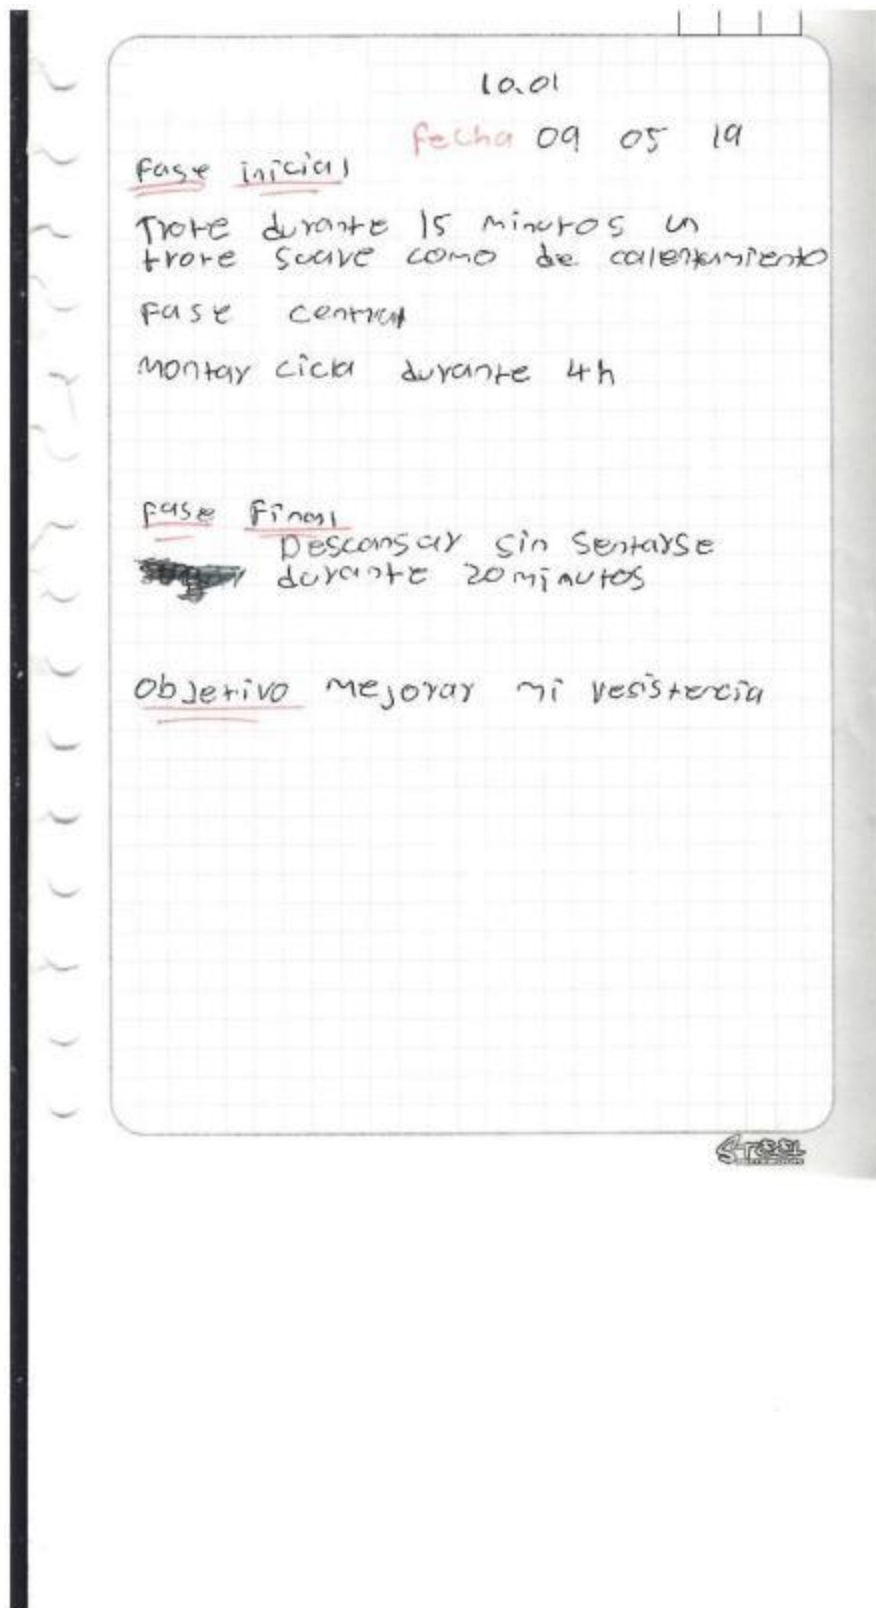 10.01
fecha 09 05 19
Fase inicial
Trote durante 15 minutos un
trote suave como de calentamiento
Fase central
Montar cicla durante 4h
Fase Final
Descansar sin sentarse
durante 20 minutos
Objetivo mejorar mi resistencia
STEEL